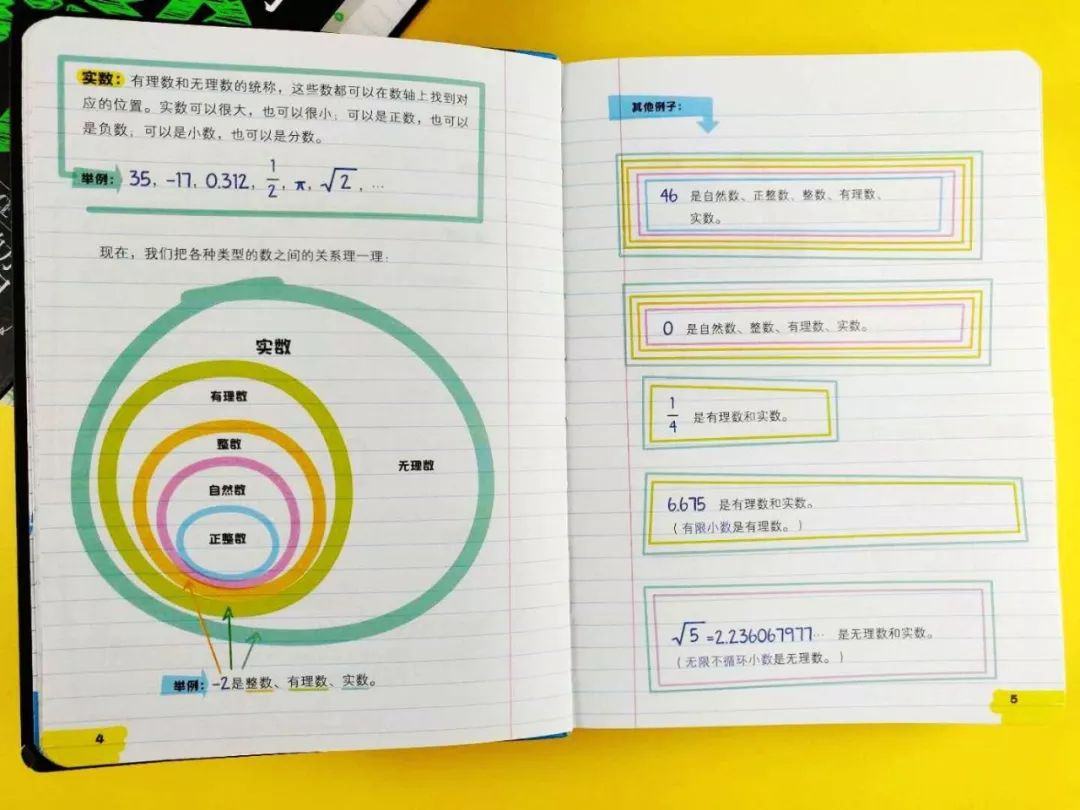 实数：有理数和无理数的统称，这些数都可以在数轴上找到对
应的位置。实数可以很大，也可以很小；可以是正数，也可以
是负数；可以是小数，也可以是分数。
举例：35，-17，0.312，1/2，π，√2，…
现在，我们把各种类型的数之间的关系理一理：
实数
有理数
整数
自然数
正整数
无理数
举例：-2是整数、有理数、实数。
4
其他例子：
46 是自然数、正整数、整数、有理数、
实数。
0 是自然数、整数、有理数、实数。
1/4 是有理数和实数。
6.675 是有理数和实数。
（有限小数是有理数。）
√5=2.236067977… 是无理数和实数。
（无限不循环小数是无理数。）
5